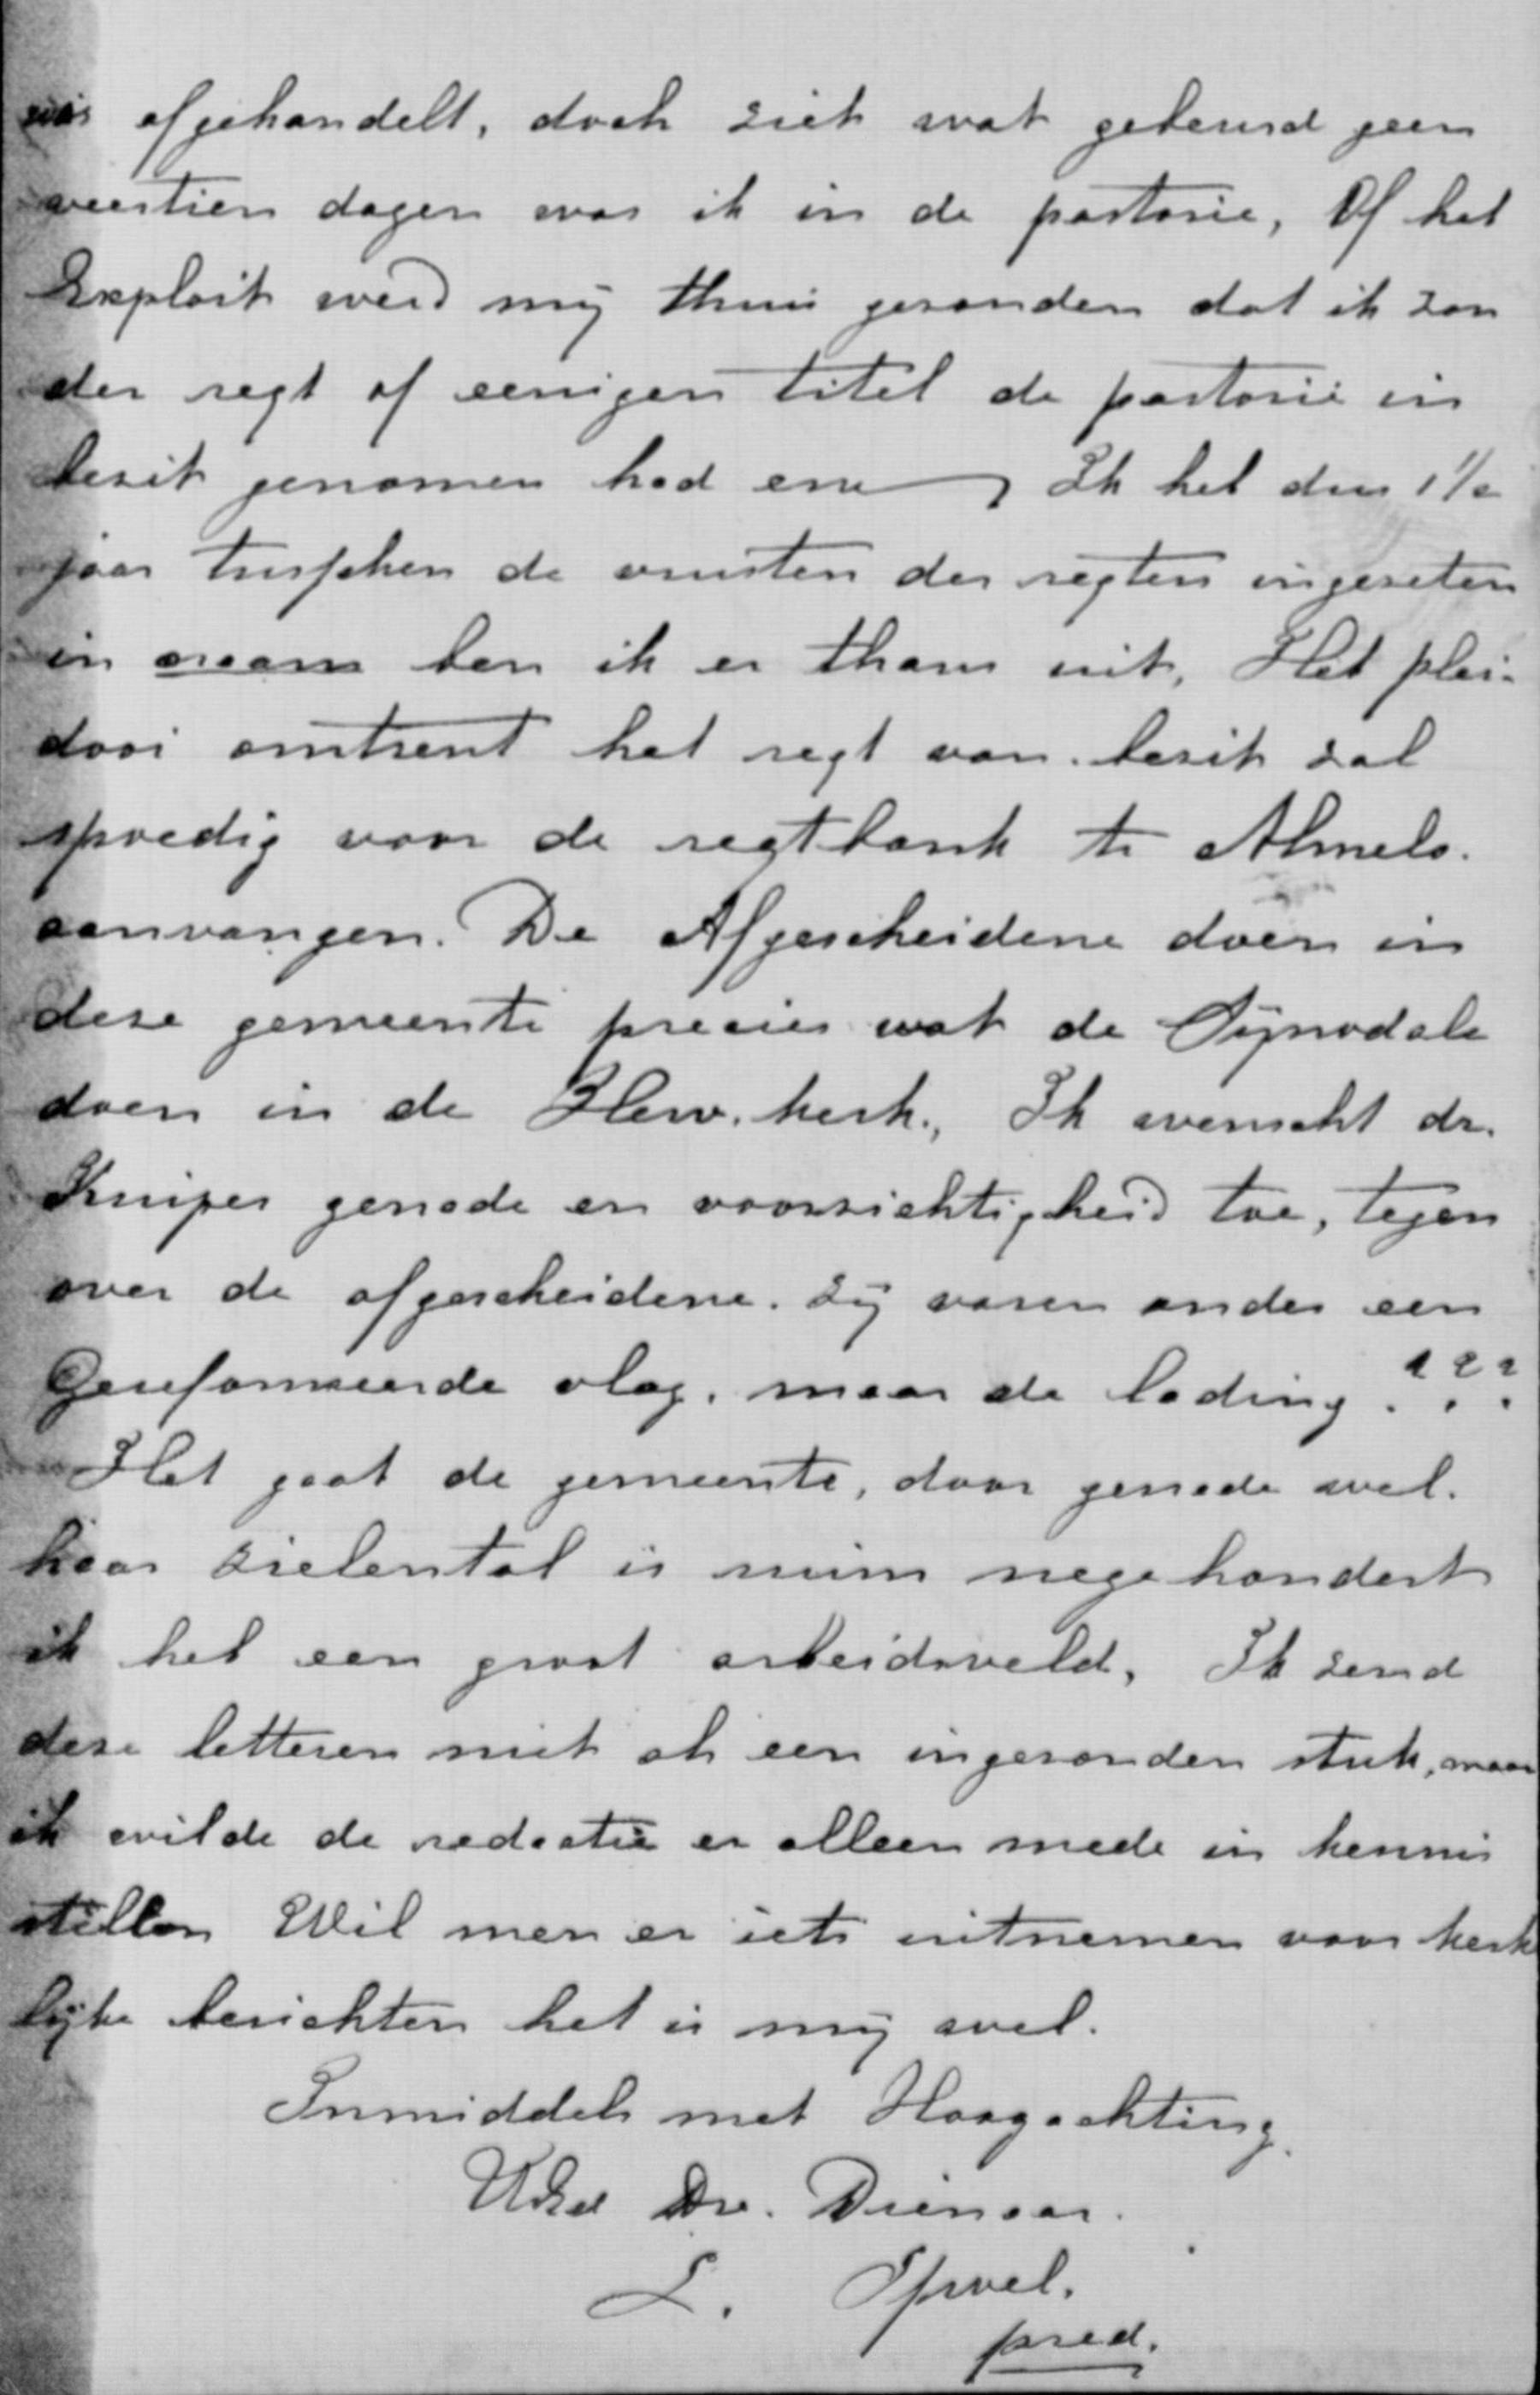 was afgehandelt, doch ziet wat gebeurd geen
veertien dagen was ik in de pastorie, Of het
Exploit werd mij thuis gezonden dat ik zon
der regt of eenigen titel de pastorie in
bezit genomen had enz Ik heb dus 1 1/2
jaar tusschen de vuisten des regters ingezeten
in naam ben ik er thans uit, Het plei-
dooi omtrent het regt van bezit zal
spoedig voor de regtbank te Almelo.
aanvangen. De Afgescheidene doen in
deze gemeente precies wat de Synodale
doen in de Herv. kerk., Ik wenscht dr.
Kuiper genade en voorzichtigheid toe, tegen
over de afgescheidene. Zij varen onder een
Gereformeerde vlag, maar de lading . . . ???
Het gaat de gemeente, door genade wel.
haar zielental is ruim negehondert
ik heb een groot arbeidsveld, Ik zend
deze letteren niet als een ingezonden stuk, maar
ik wilde de redactie er alleen mede in kennis
stellen Wil men er iets uitnemen voor kerk
lijke berichten het is mij wel.
Inmiddels met Hoogachting.
UEd Dw. Dienaar.
L. Spoel.
pred.